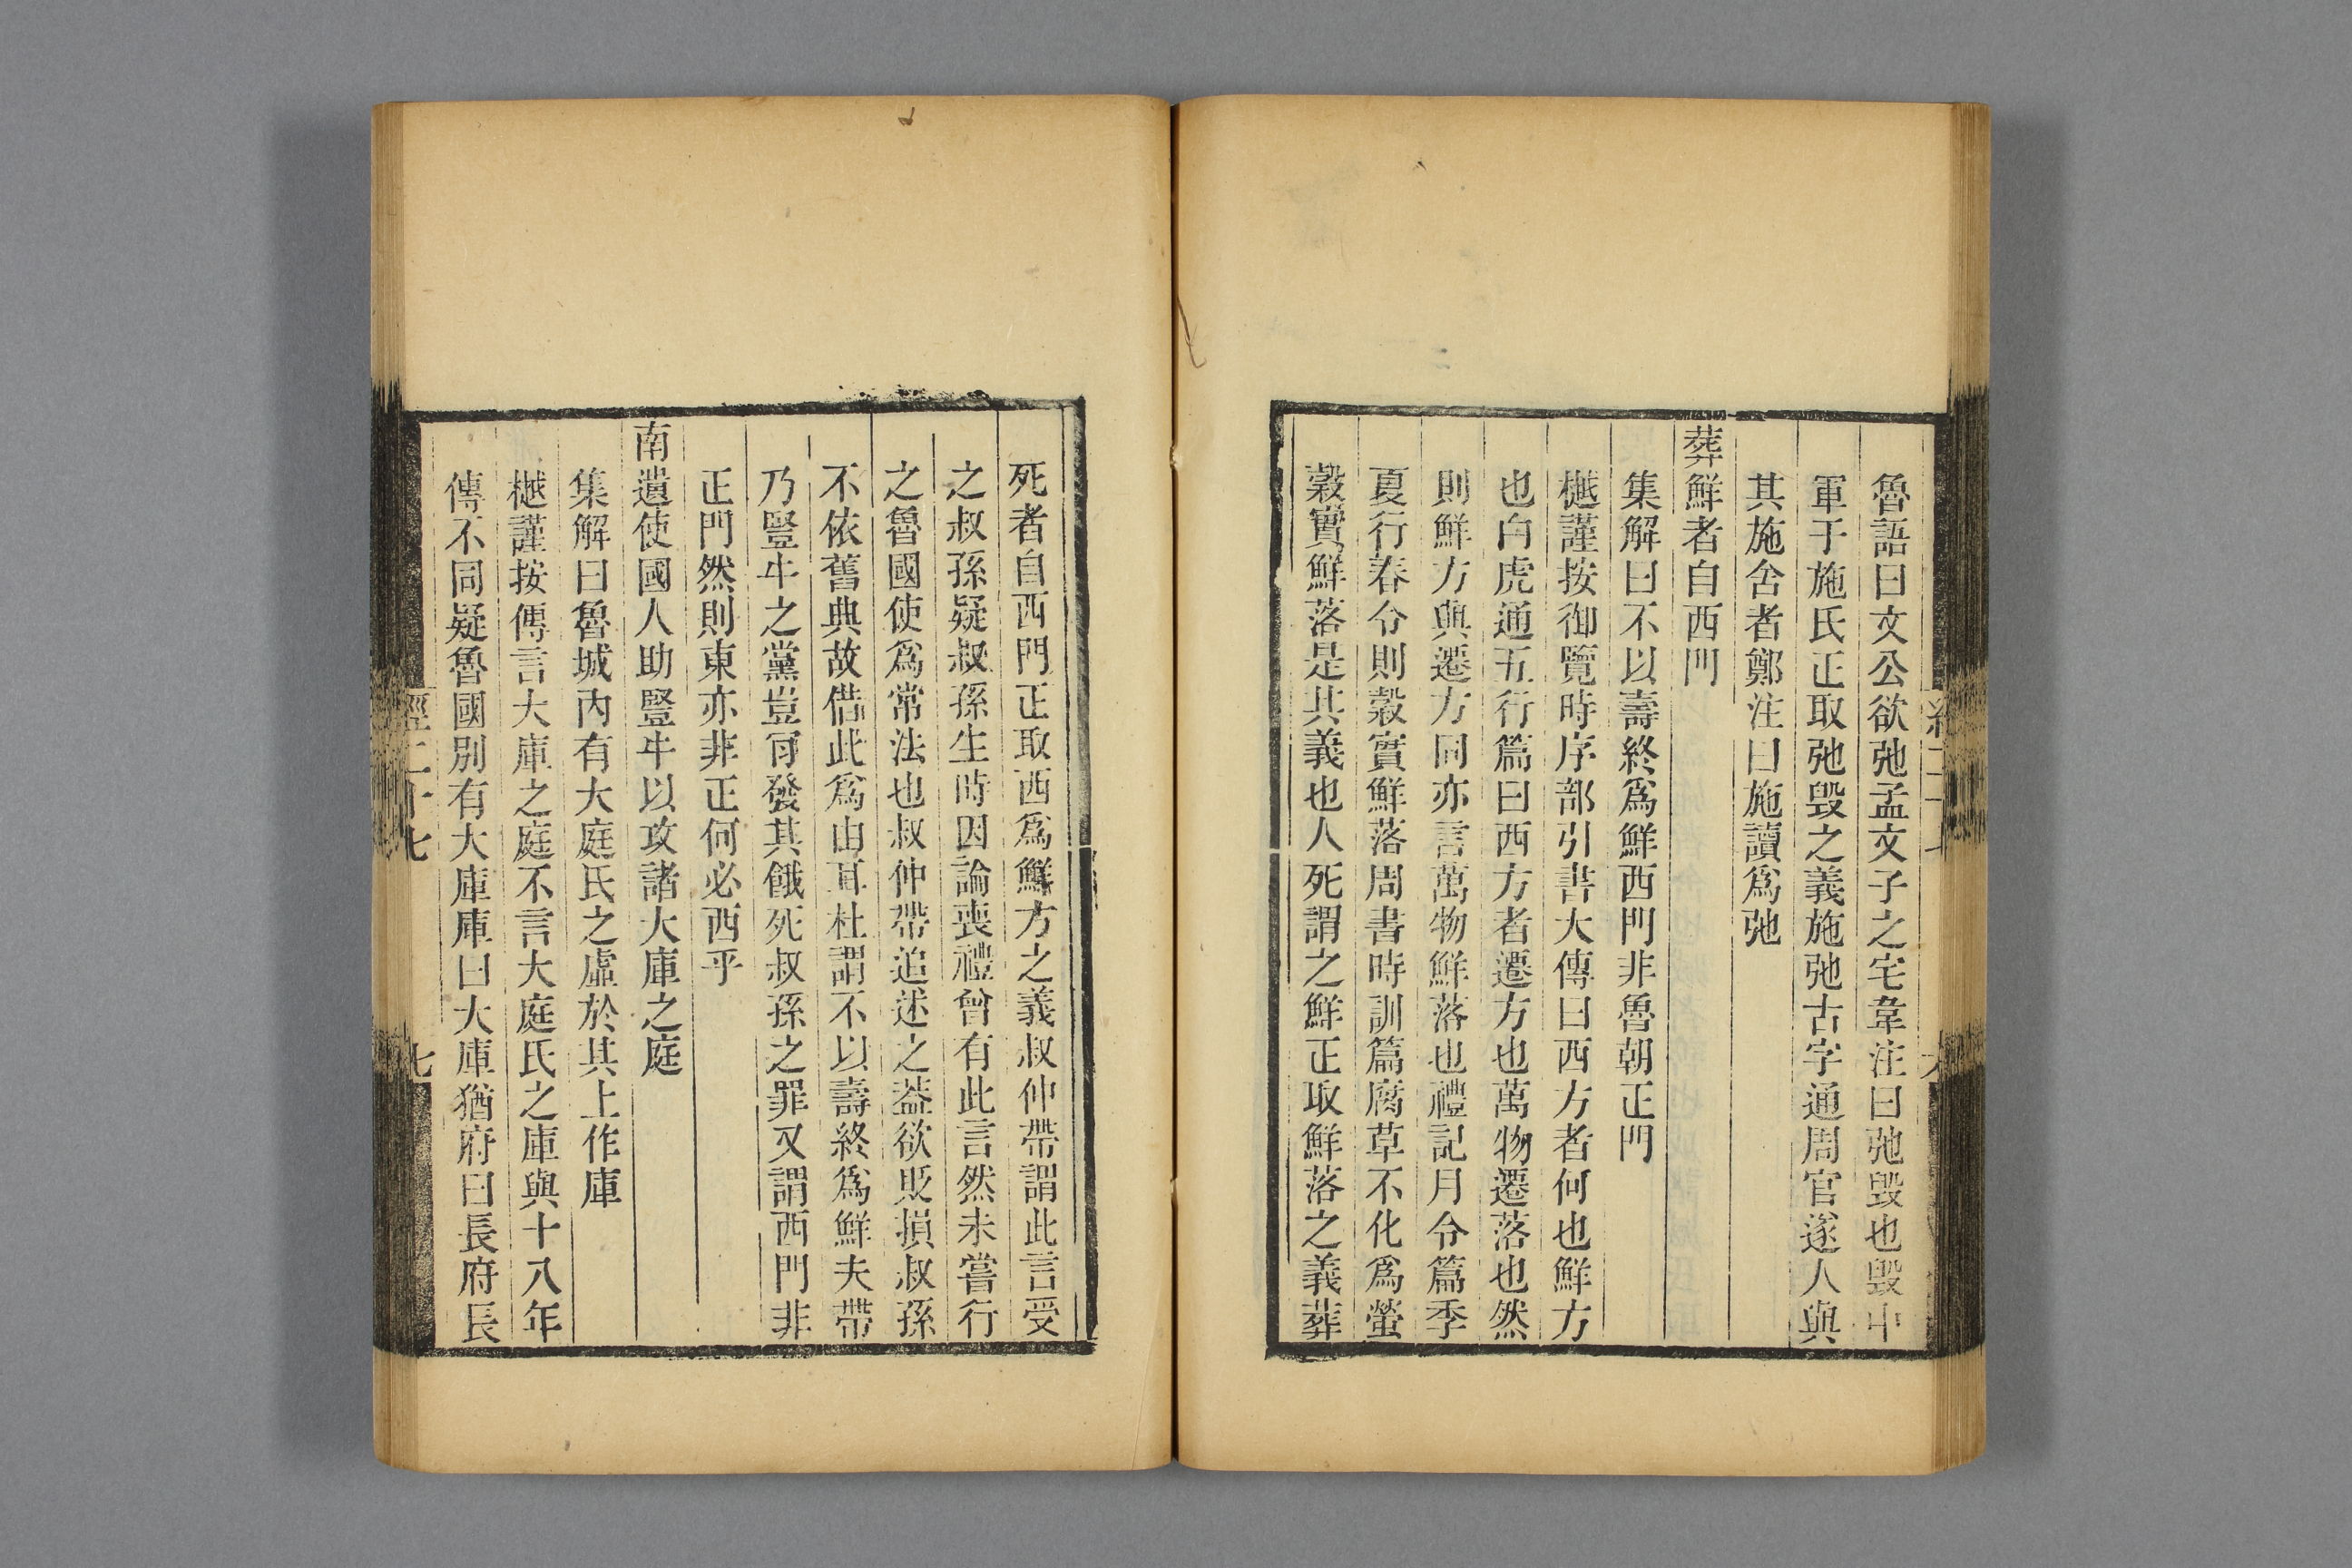 魯語曰文公欲弛孟文子之宅韋注曰弛毀也毀中
軍于施氏正取弛毀之義施弛古字通周官遂人與
其施舍者鄭注曰施讀爲弛
葬鮮者自西門
集解曰不以壽終爲鮮西門非魯朝正門
樾謹按御覽時序部引書大傳曰西方者何也鮮方
也白虎通五行篇曰西方者遷方也萬物遷落也然
則鮮方與遷方同亦言萬物鮮落也禮記月令篇季
夏行春令則穀實鮮落周書時訓篇腐草不化爲螢
穀實鮮落是其義也人死謂之鮮正取鮮落之義葬
死者自西門正取西爲鮮方之義叔仲帶謂此言受
之叔孫疑叔孫生時因論喪禮曾有此言然未嘗行
之魯國使爲常法也叔仲帶追述之葢欲貶損叔孫
不依舊典故借此爲由耳杜謂不以壽終爲鮮夫帶
乃豎牛之黨豈肎發其餓死叔孫之罪又謂西門非
正門然則東亦非正何必西乎
南遺使國人助豎牛以攻諸大庫之庭
集解曰魯城內有大庭氏之虛於其上作庫
樾謹按傳言大庫之庭不言大庭氏之庫與十八年
傳不同疑魯國別有大庫庫曰大庫猶府曰長府長
經二十七
七